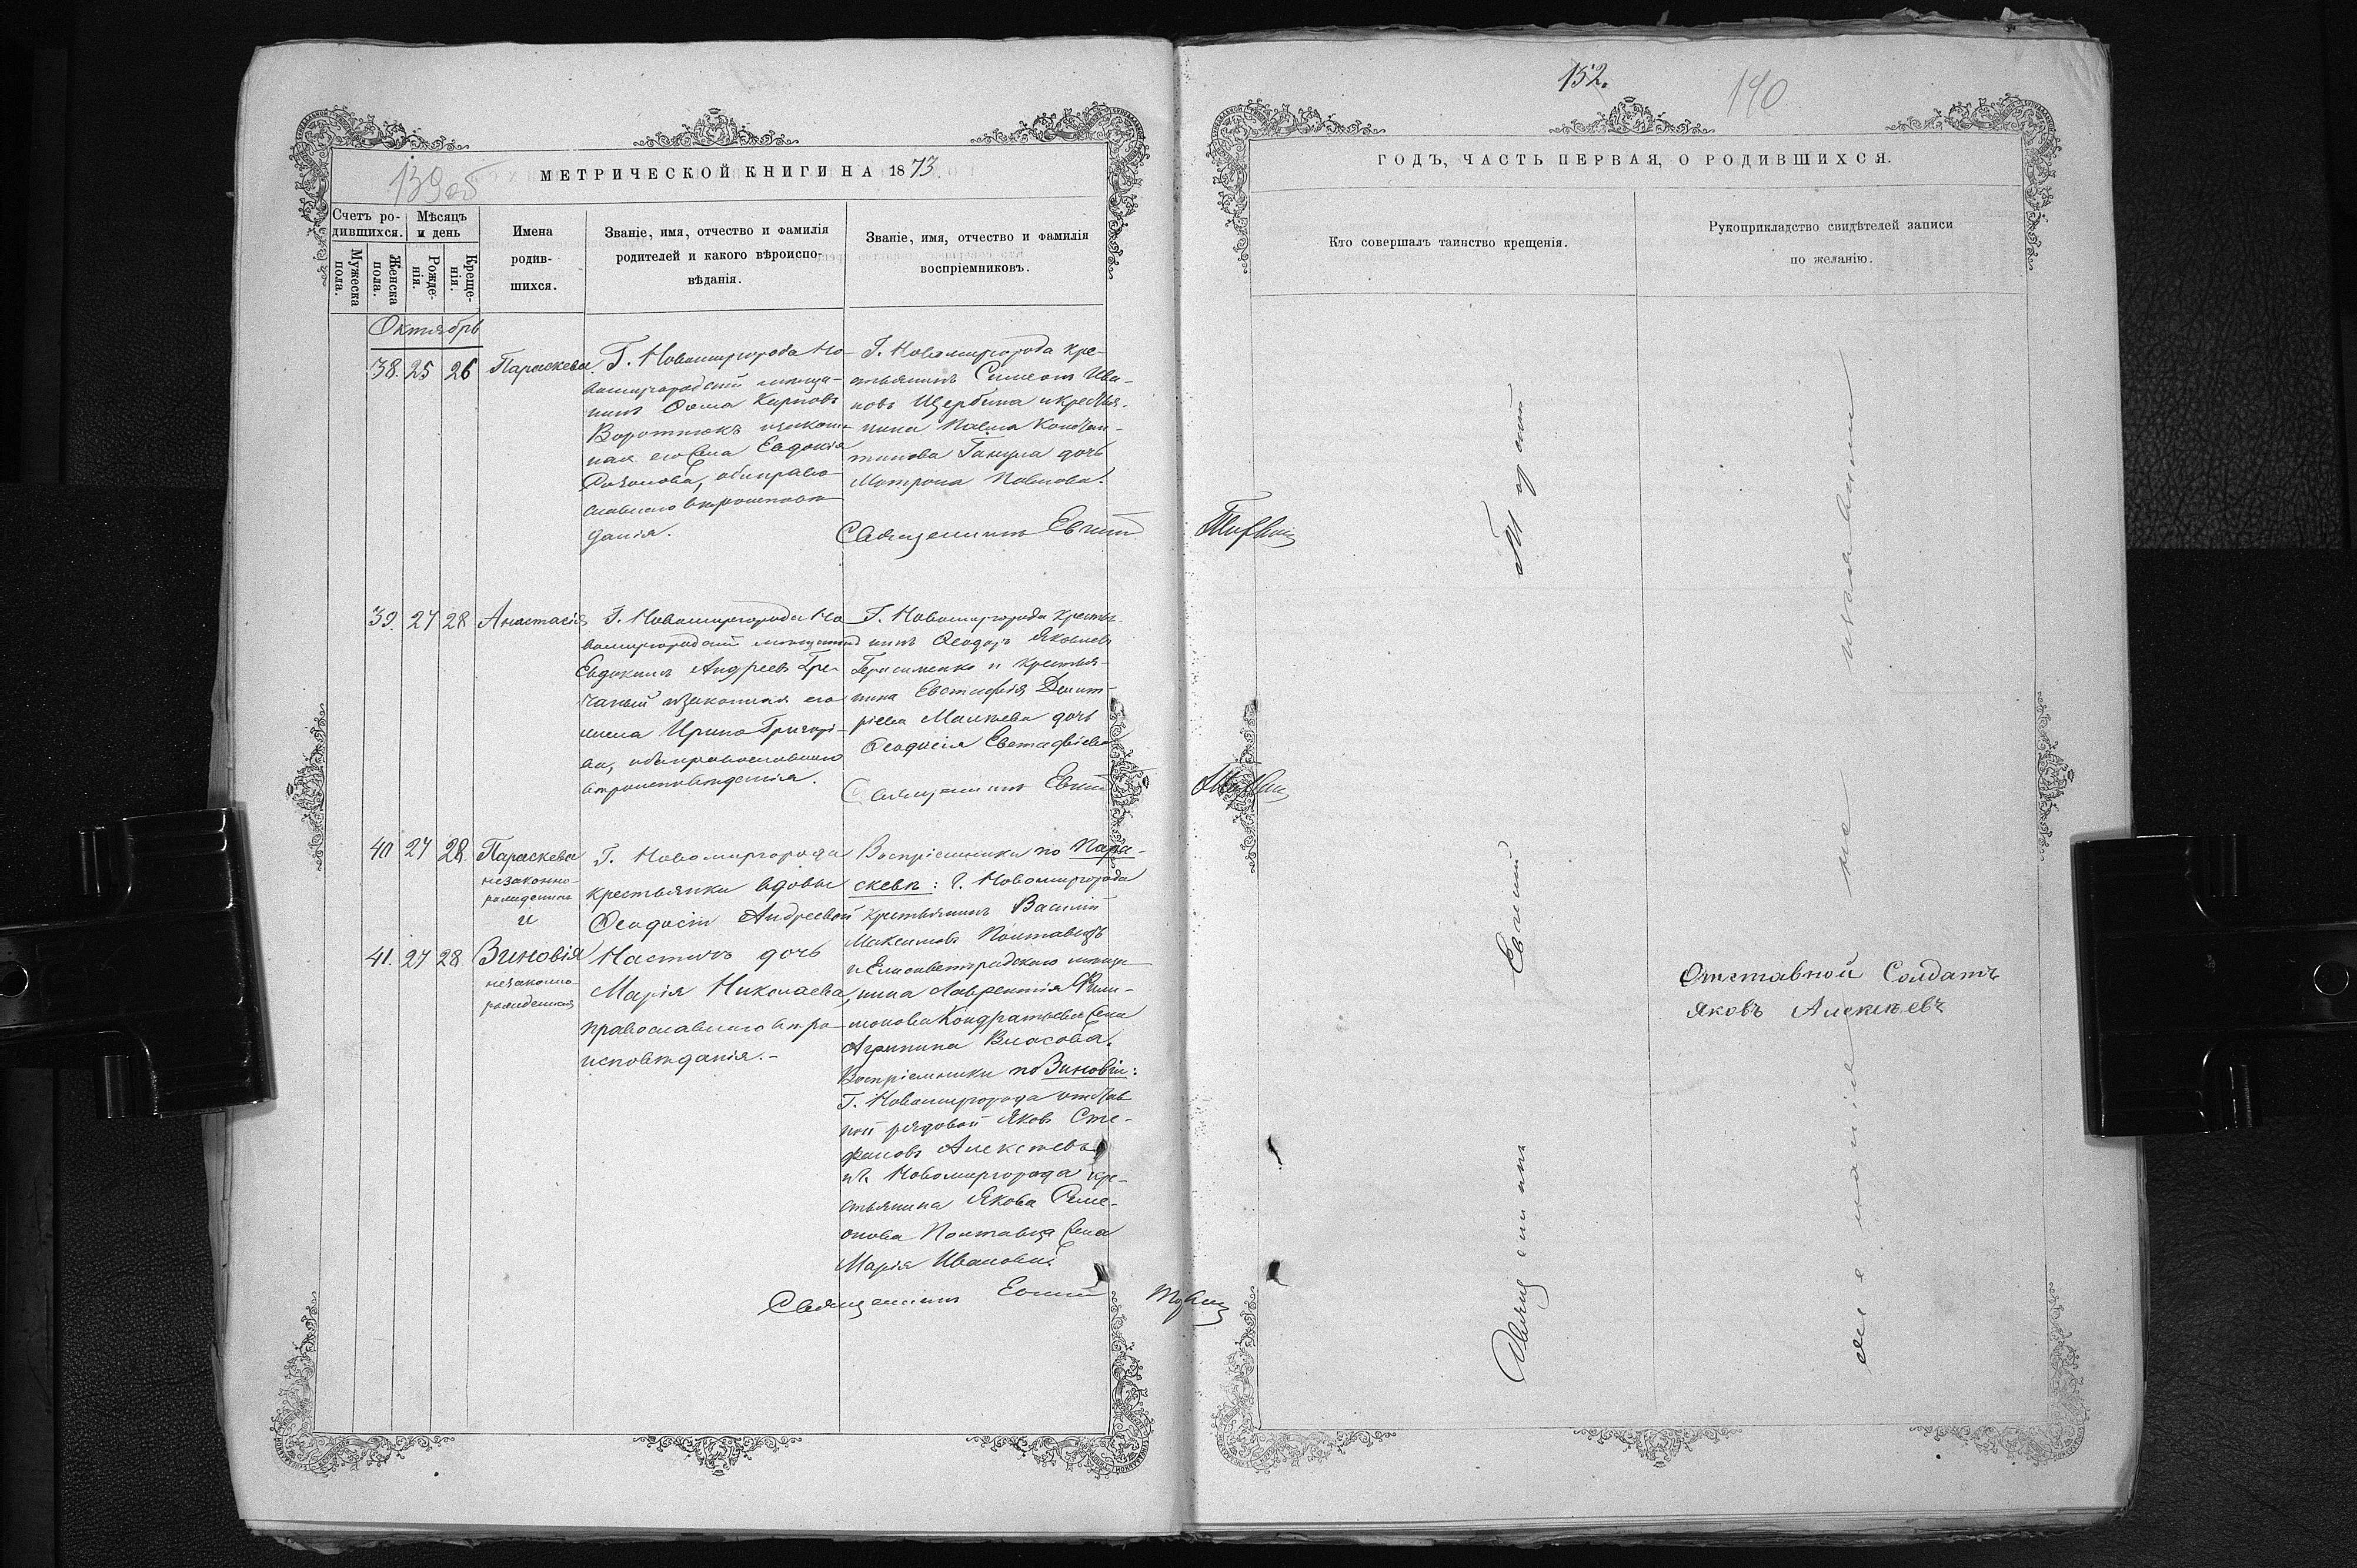 139 об
МЕТРИЧЕСКОЙ КНИГИ НА 1873
Счетъ ро-
дившихся.
Мѣсяцъ
и день
Мужеска
пола.
Женска
пола.
Рожде-
нія.
Креще-
нія.
Имена
родив-
шихся.
Званіе, имя, отчество и фамилія
родителей и какого вѣроиспо-
вѣданія.
Званіе, имя, отчество и фамилія
воспріемниковъ.
Октябрь
38. 25 26 Параскева.
Г. Новомиргорода Но-
вомиргородскій мѣща-
нинъ Ѳома Карповъ
Воротнюкъ изакон-
ная его жена Евдокія
оба право-
славнаго вѣроисповѣ-
данія.
Г. Новомиргорода кре-
стьянинъ Симеонъ Ива-
новъ Щербина и крестья-
нина Павла Констан-
тинова дочь
Мотрона Павлова.
Священникъ Евгеній
39. 27 28 Анастасія
Г. Новомиргорода Но
вомиргородскій мѣщанинъ
Евдокимъ Андреевъ Гре-
чаный изаконная его
жена Ирина Григорі-
ва, оба православнаго
вѣроисповѣданія.
Г. Новомиргорода крестья-
нинъ Ѳеодоръ Яковлевъ
Герасименко и крестья-
нина Евстафія Димит-
ріева дочь
Ѳеодосія Евстафіева
Священникъ Евгеній
40 27 28. Параскева
незаконно-
рожденная
и
41. 27 28. Зиновія
незаконно-
рожденная
Г. Новомиргорода
крестьянки вдовы
Ѳеодосіи Андреевой
дочь
Марія Николаева,
православнаго вѣро-
исповѣданія.-
Воспріемники по Пара-
скевѣ: г. Новомиргорода
крестьянинъ Василій
Максимовъ Полтавецъ
и Елисаветградскаго мѣща-
нина Лаврентія Фили-
монова Кондратьева жена
Агрипина Власова.
Воспріемники по Зиновіи:
Г. Новомиргорода отстав
ной рядовой Яковъ Сте-
фановъ Алексѣевъ
и г. Новомиргорода кре-
стьянина Якова Симе-
онова Полтавца жена
Марія Иванова.
Священникъ Евгеній
152.
140
ГОДЪ, ЧАСТЬ ПЕРВАЯ, О РОДИВШИХСЯ.
Кто совершалъ таинство крещенія.
Рукоприкладство свидѣтелей записи
по желанію.
Священникъ Евгеній
Отставной Солдатъ
Яковъ Алексѣевъ